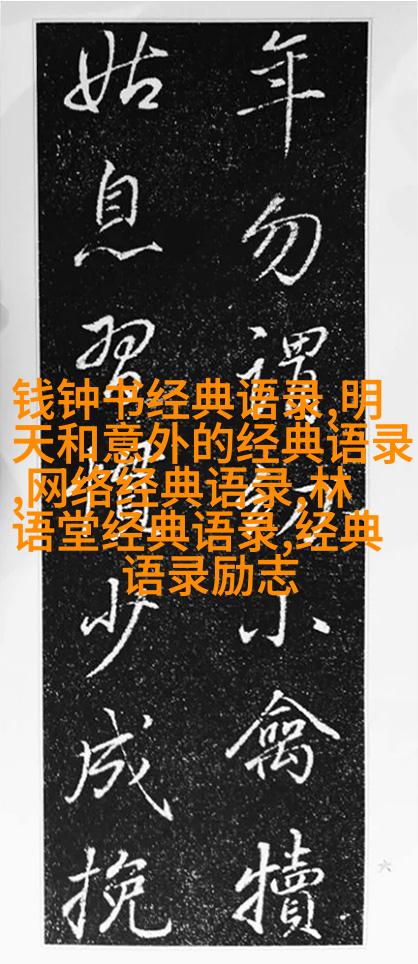 年勿謂小禽犢
姑息習慣少成挽
钱钟书经典语录,明
天和意外的经典语录
,网络经典语录,林
语堂经典语录,经典
语录励志
六